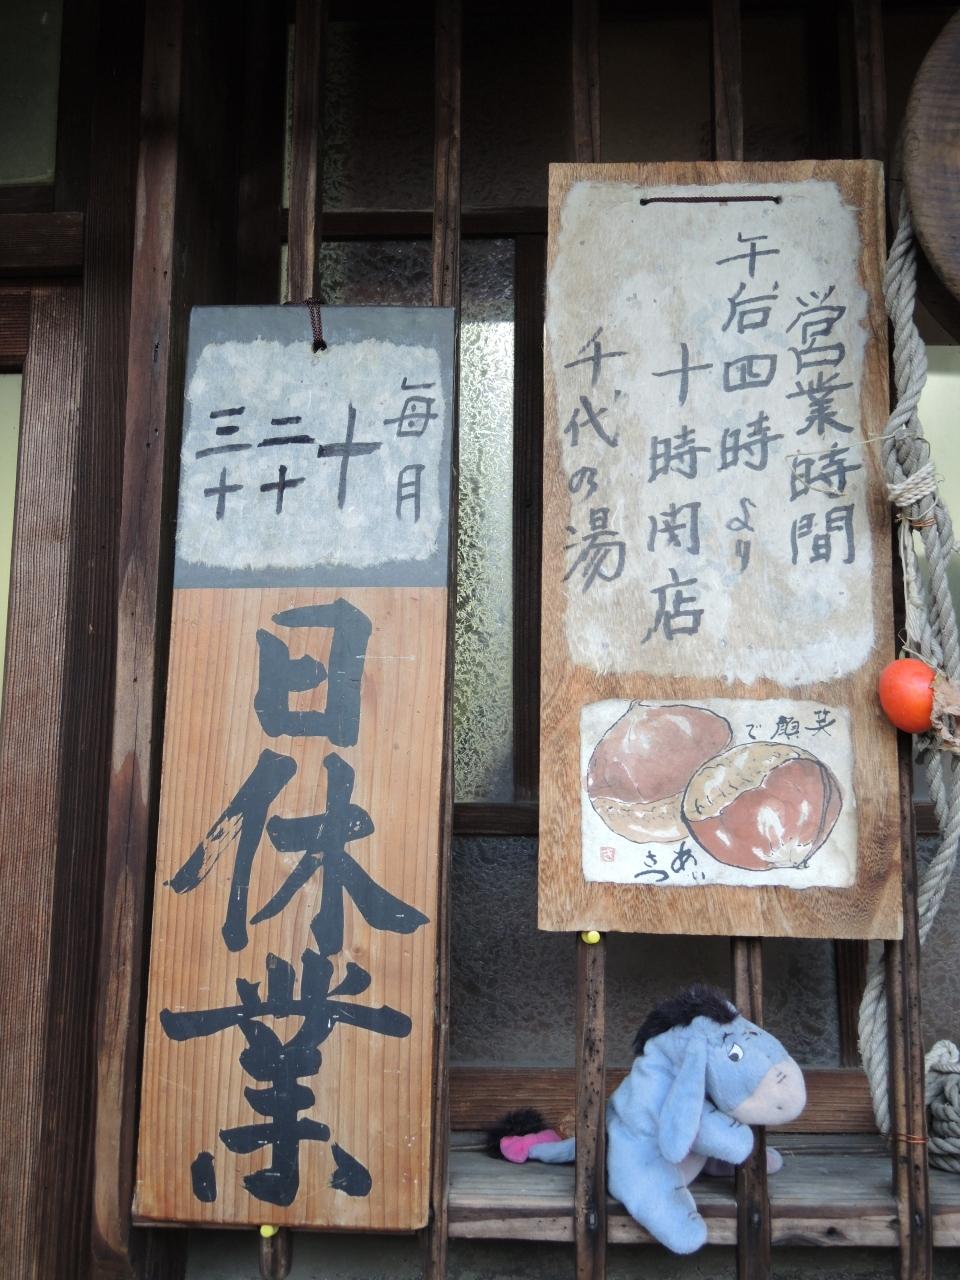 営業時間
午后四時より
十時閉店
千代の湯
笑顔で
あいさつ
毎月
十
二十
三十
日休業